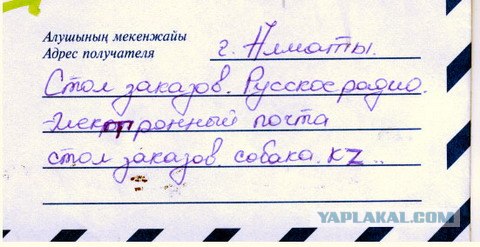 Алушының мекенжайы
Адрес получателя
г. Алматы.
Стол заказов. Русское радио.
электронный почта
стол заказов. собака. KZ..
YAPLAKAL.COM